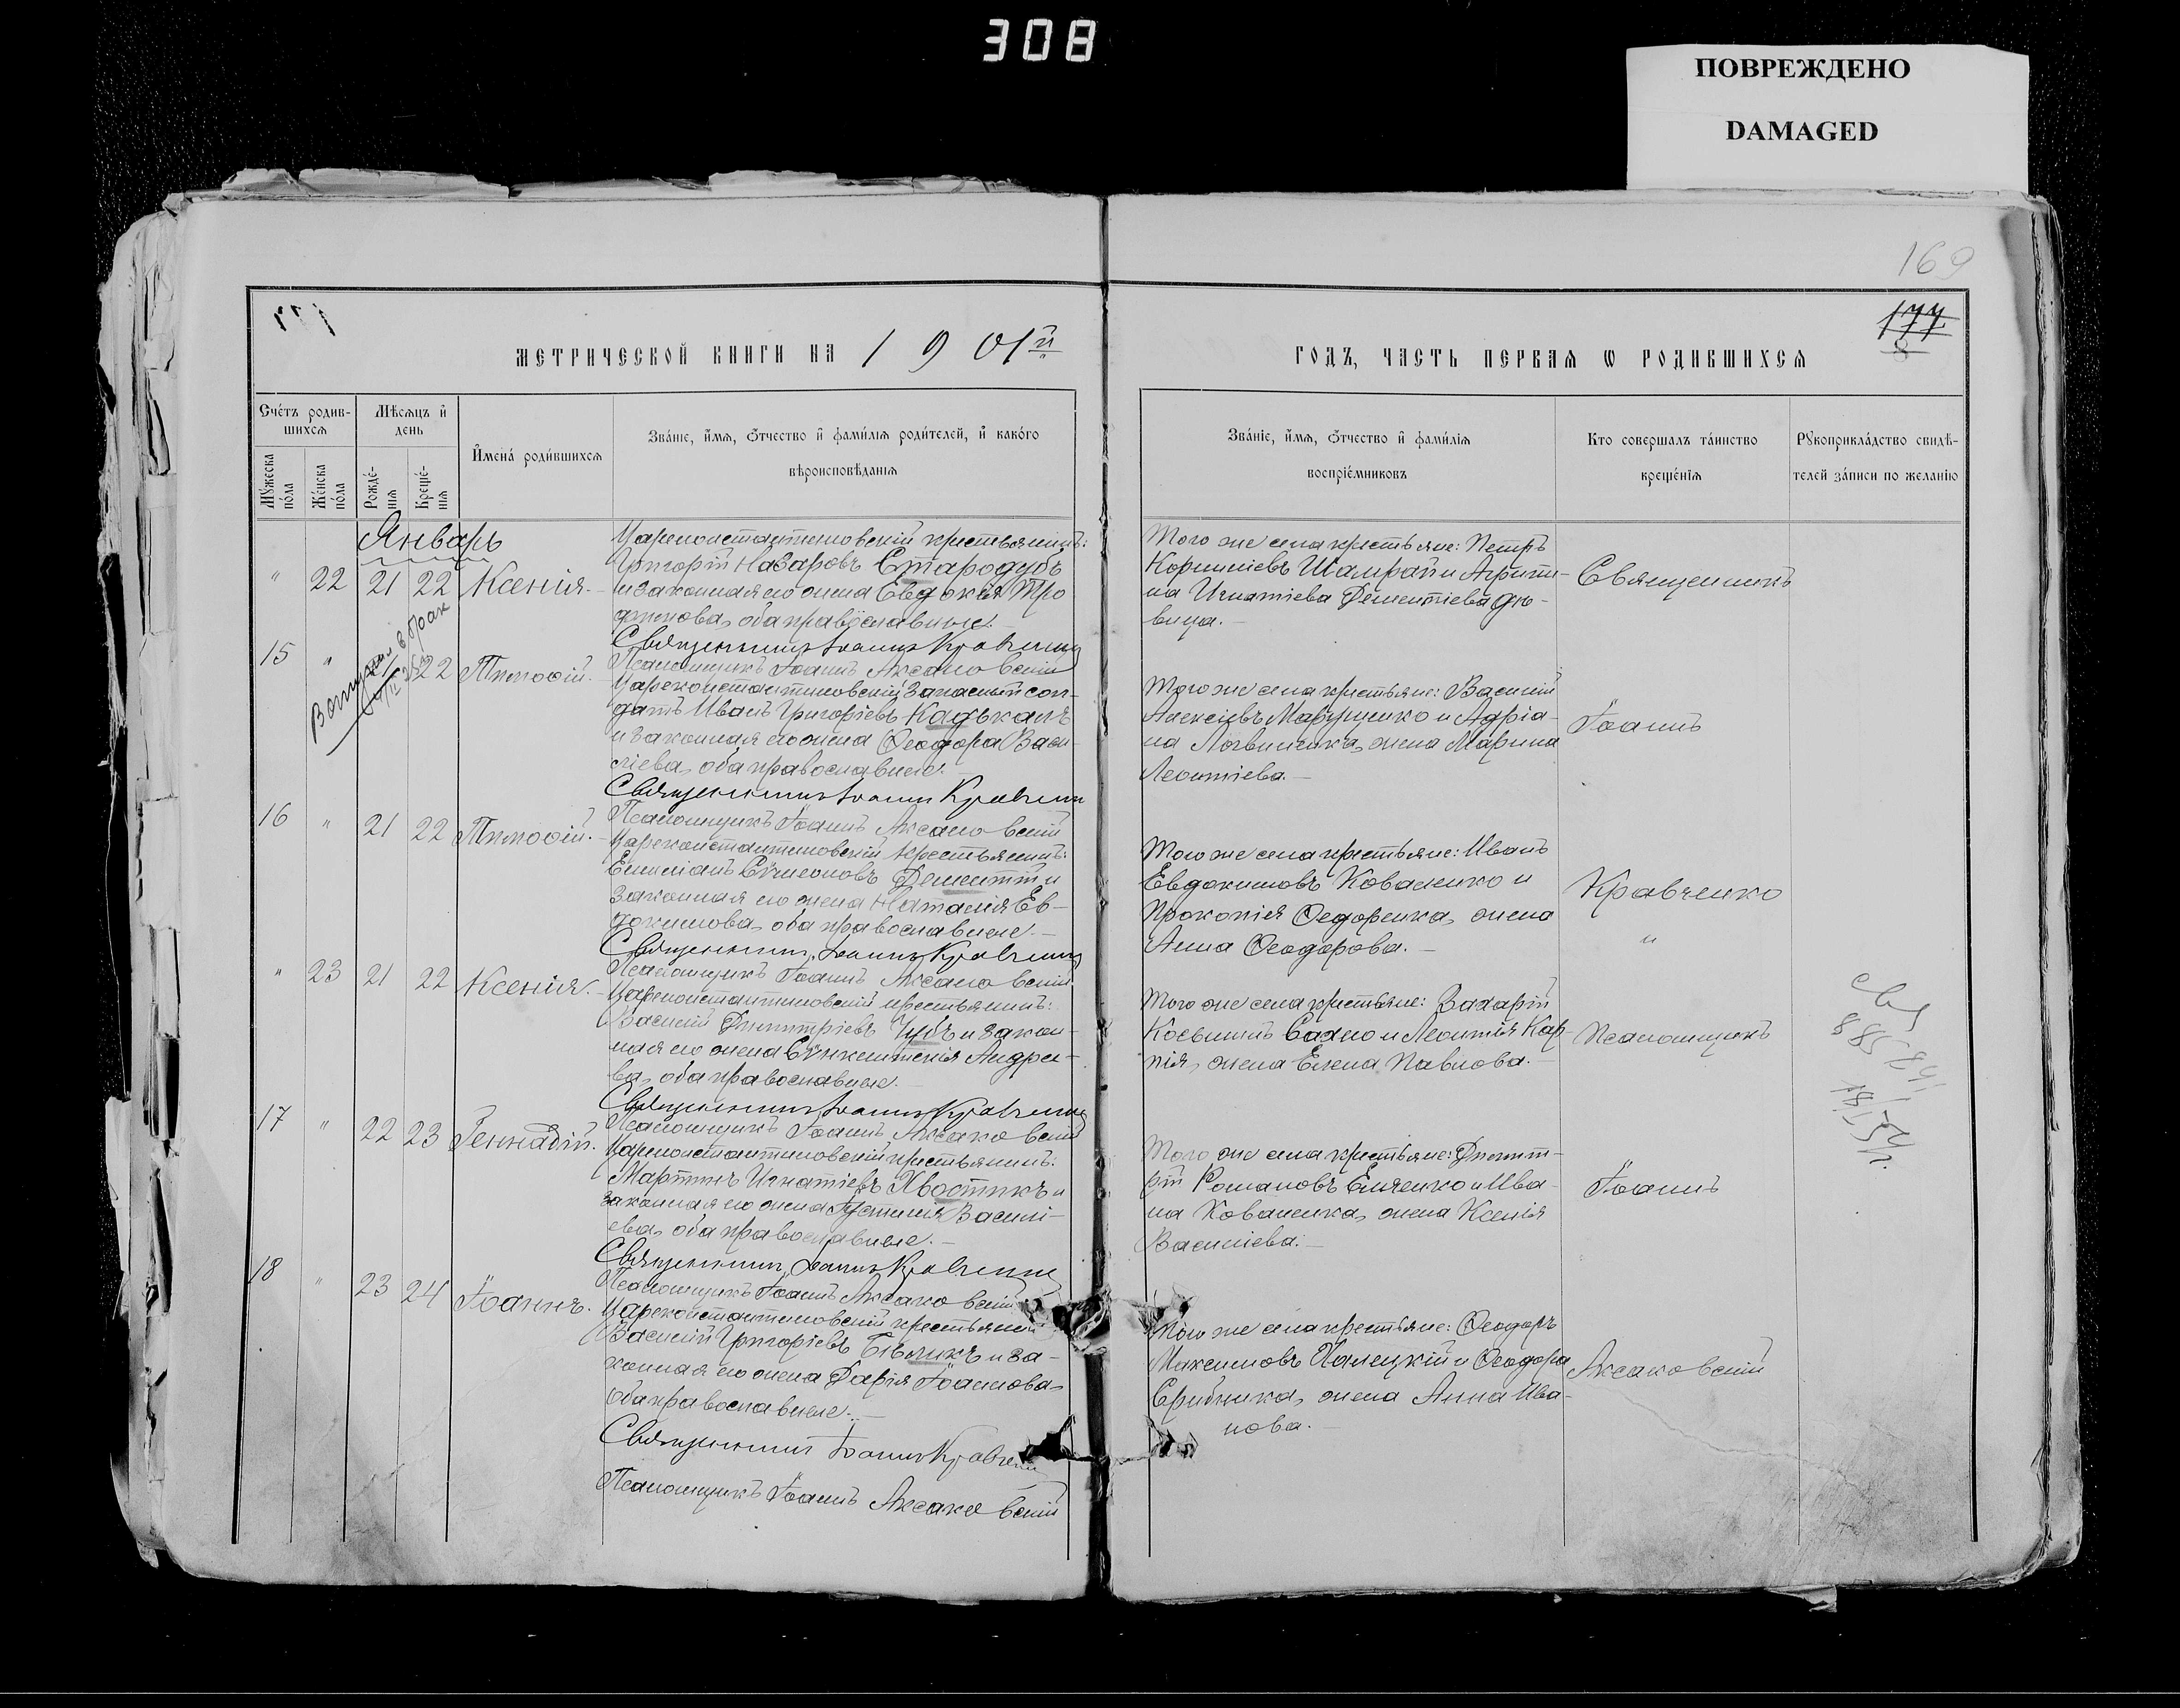 308
ПОВРЕЖДЕНО
DAMAGED
169
177
МЕТРИЧЕСКОЙ КНИГИ НА 1901й
ГОДЪ, ЧАСТЬ ПЕРВАЯ Ѡ РОДИВШИХСЯ
Счетъ родив-
шихся
Мѣсяцъ и
день
Имена родившихся
Званіе, имя, отчество и фамилія родителей, и какого
вѣроисповѣданія
Мужеска пола
Женска пола
Рожде-
нія
Креще-
нія
Званіе, имя, отчество и фамилія
воспріемниковъ
Кто совершалъ таинство
крещенія
Рукоприкладство свидѣ-
телей записи по желанію
Январь
" 22 21 22 Ксенія.
Цареконстантиновскій крестьянинъ:
Григорій Назаровъ Стародубъ
и законная его жена Евдокія Тро
фимова, оба православные.
Священникъ Іоаннъ Кравченко
Псаломщикъ Іоаннъ Аксаковскій
Того же села крестьяне: Петръ
Корниліевъ Шамрай и Агрипи-
на Игнатіева Дементіева дѣ-
вица.
Священникъ
15 " 21 22 Тимоѳій.
Вступил в брак
Цареконстантиновскій запасный сол-
датъ Иванъ Григорьевъ Кадькалъ
и законная его жена Ѳеодора Васи-
ліева, оба православные.
Священникъ Іоаннъ Кравченко
Псаломщикъ Іоаннъ Аксаковскій
Того же села крестьяне: Василій
Алексіевъ Марущенко и Адріа-
на Логвиненка, жена Марина
Леонтіева.
Іоаннъ
16 " 21 22 Тимоѳій.
Цареконстантиновскій крестьянинъ:
Емиліанъ Сѵмеоновъ Дементій и
законная его жена Наталія Ев-
докимова, оба православные.
Священникъ Іоаннъ Кравченко
Псаломщикъ Іоаннъ Аксаковскій
Того же села крестьяне: Иванъ
Евдокимовъ Коваленко и
Прокопія Ѳедоренка, жена
Анна Ѳеодорова.
Кравченко
и
" 23 21 22 Ксенія.
Цареконстантиновскій крестьянинъ:
Василій Димитріевъ Чубъ и закон-
ная его жена Сѵнклитикія Андрее-
ва, оба православные.
Священникъ Іоаннъ Кравченко
Псаломщикъ Іоаннъ Аксаковскій
Того же села крестьяне: Захарій
Косьминъ Сахно и Леонтія Кар-
пія, жена Елена Павлова.
Псаломщикъ
17 " 22 23 Геннадій.
Цареконстантиновскій крестьянинъ:
Мартинъ Игнатіевъ Хвостикъ и
законная его жена Іустинія Василі-
ева, оба православные.
Священникъ Іоаннъ Кравченко
Псаломщикъ Іоаннъ Аксаковскій
Того же села крестьяне: Димит-
рій Романовъ Емченко и Ива-
на Коваленка, жена Ксенія
Василіева.
Іоаннъ
18 " 23 24 Іоаннъ.
Цареконстантиновскій крестьянинъ
Василій Григоріевъ Бѣликъ и за-
конная его жена Дарія Іоаннова,
оба православные.
Священникъ Іоаннъ Кравченко
Псаломщикъ Іоаннъ Аксаковскій
Того же села крестьяне: Ѳеодоръ
Максимовъ Халецкій и Ѳеодора
Срибника, жена Анна Ива-
нова.
Аксаковскій